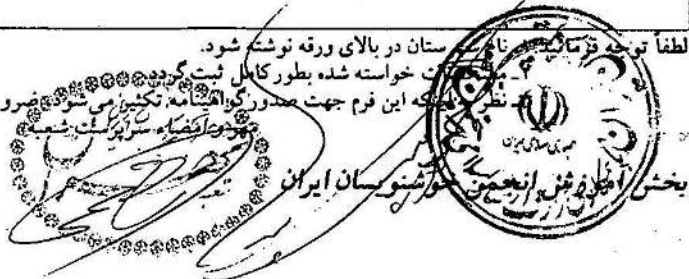 لطفاً توجه فرمائید: ۱ـ نام شهرستان در بالای ورقه نوشته شود.
۲ـ مشخصات خواسته شده بطور کامل ثبت گردد.
نظر به اینکه این فرم جهت صدور گواهینامه تکثیر می شود ضرو
مهر و امضاء سرپرست شعبه
بخش آموزش انجمن خوشنویسان ایران